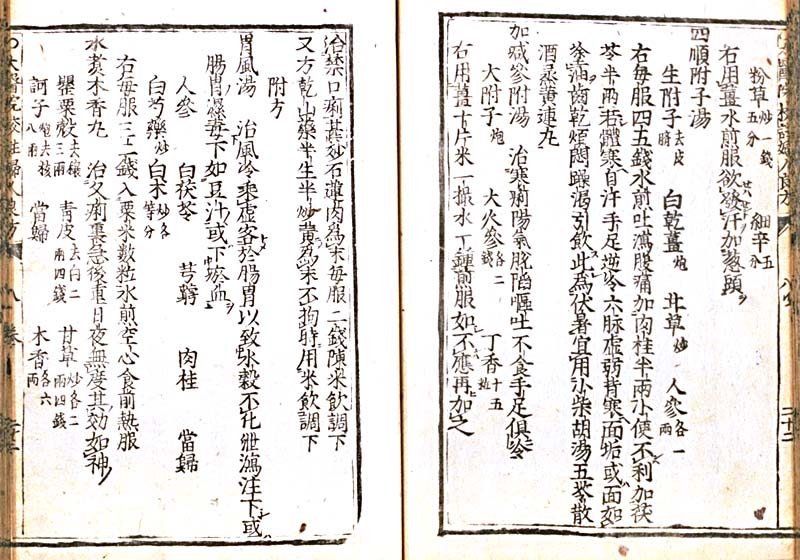 粉草炒一錢五分 細辛五分
右用薑水前服欲發汗加葱頭
四順附子湯
生附子去皮臍 白乾薑炮 甘草炒 人參各一兩
右每服四五錢水煎吐瀉腹痛加肉桂半兩小便不利加茯
苓半兩若體寒自汗手足逆冷六脉虛弱背寒面垢或面如
塗油齒乾煩悶躁渴引飲此為伏暑宜用小柴胡湯五苓散
酒蒸黃連丸
加減參附湯 治寒痢陽氣脫陷嘔吐不食手足俱冷
大附子炮 大人參各二錢 丁香十五粒
右用薑十片米一撮水二鍾煎服如不應再加之
治禁口痢甚炒石蓮肉為末每服二錢陳米飲調下
又方乾山藥半生半炒黃為末不拘時用米飲調下
附方
胃風湯 治風冷乘虛客於腸胃以致水穀不化泄瀉注下或
腸胃濕毒下如豆汁或下瘀血
人參 白茯苓 芎藭 肉桂 當歸
白芍藥炒 白朮炒各等分
右每服二三錢入粟米數粒水煎空心食前熱服
水煮木香丸 治久痢裏急後重日夜無度其効如神
罌粟殼去穰三兩 青皮去白二兩四錢 甘草炒各二兩四錢
訶子炮去核八兩 當歸 木香各六兩